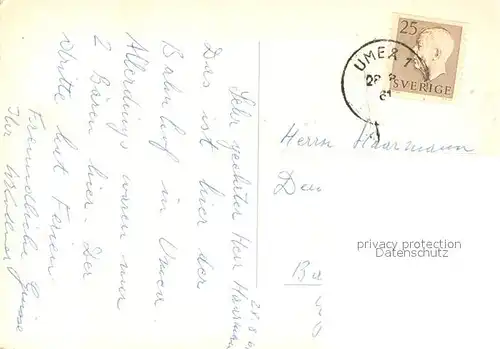 Sehr geehrter Herr Haarmann
Das ist hier der
Bahnhof in Umea.
Allerdings waren nur
2 Bären hier. Der
dritte hat Ferien.
Freundliche Grüsse
Ihr
28.8.
25
SVERIGE
UMEÅ 1
28 8
61
Herrn Haarmann
privacy protection
Datenschutz